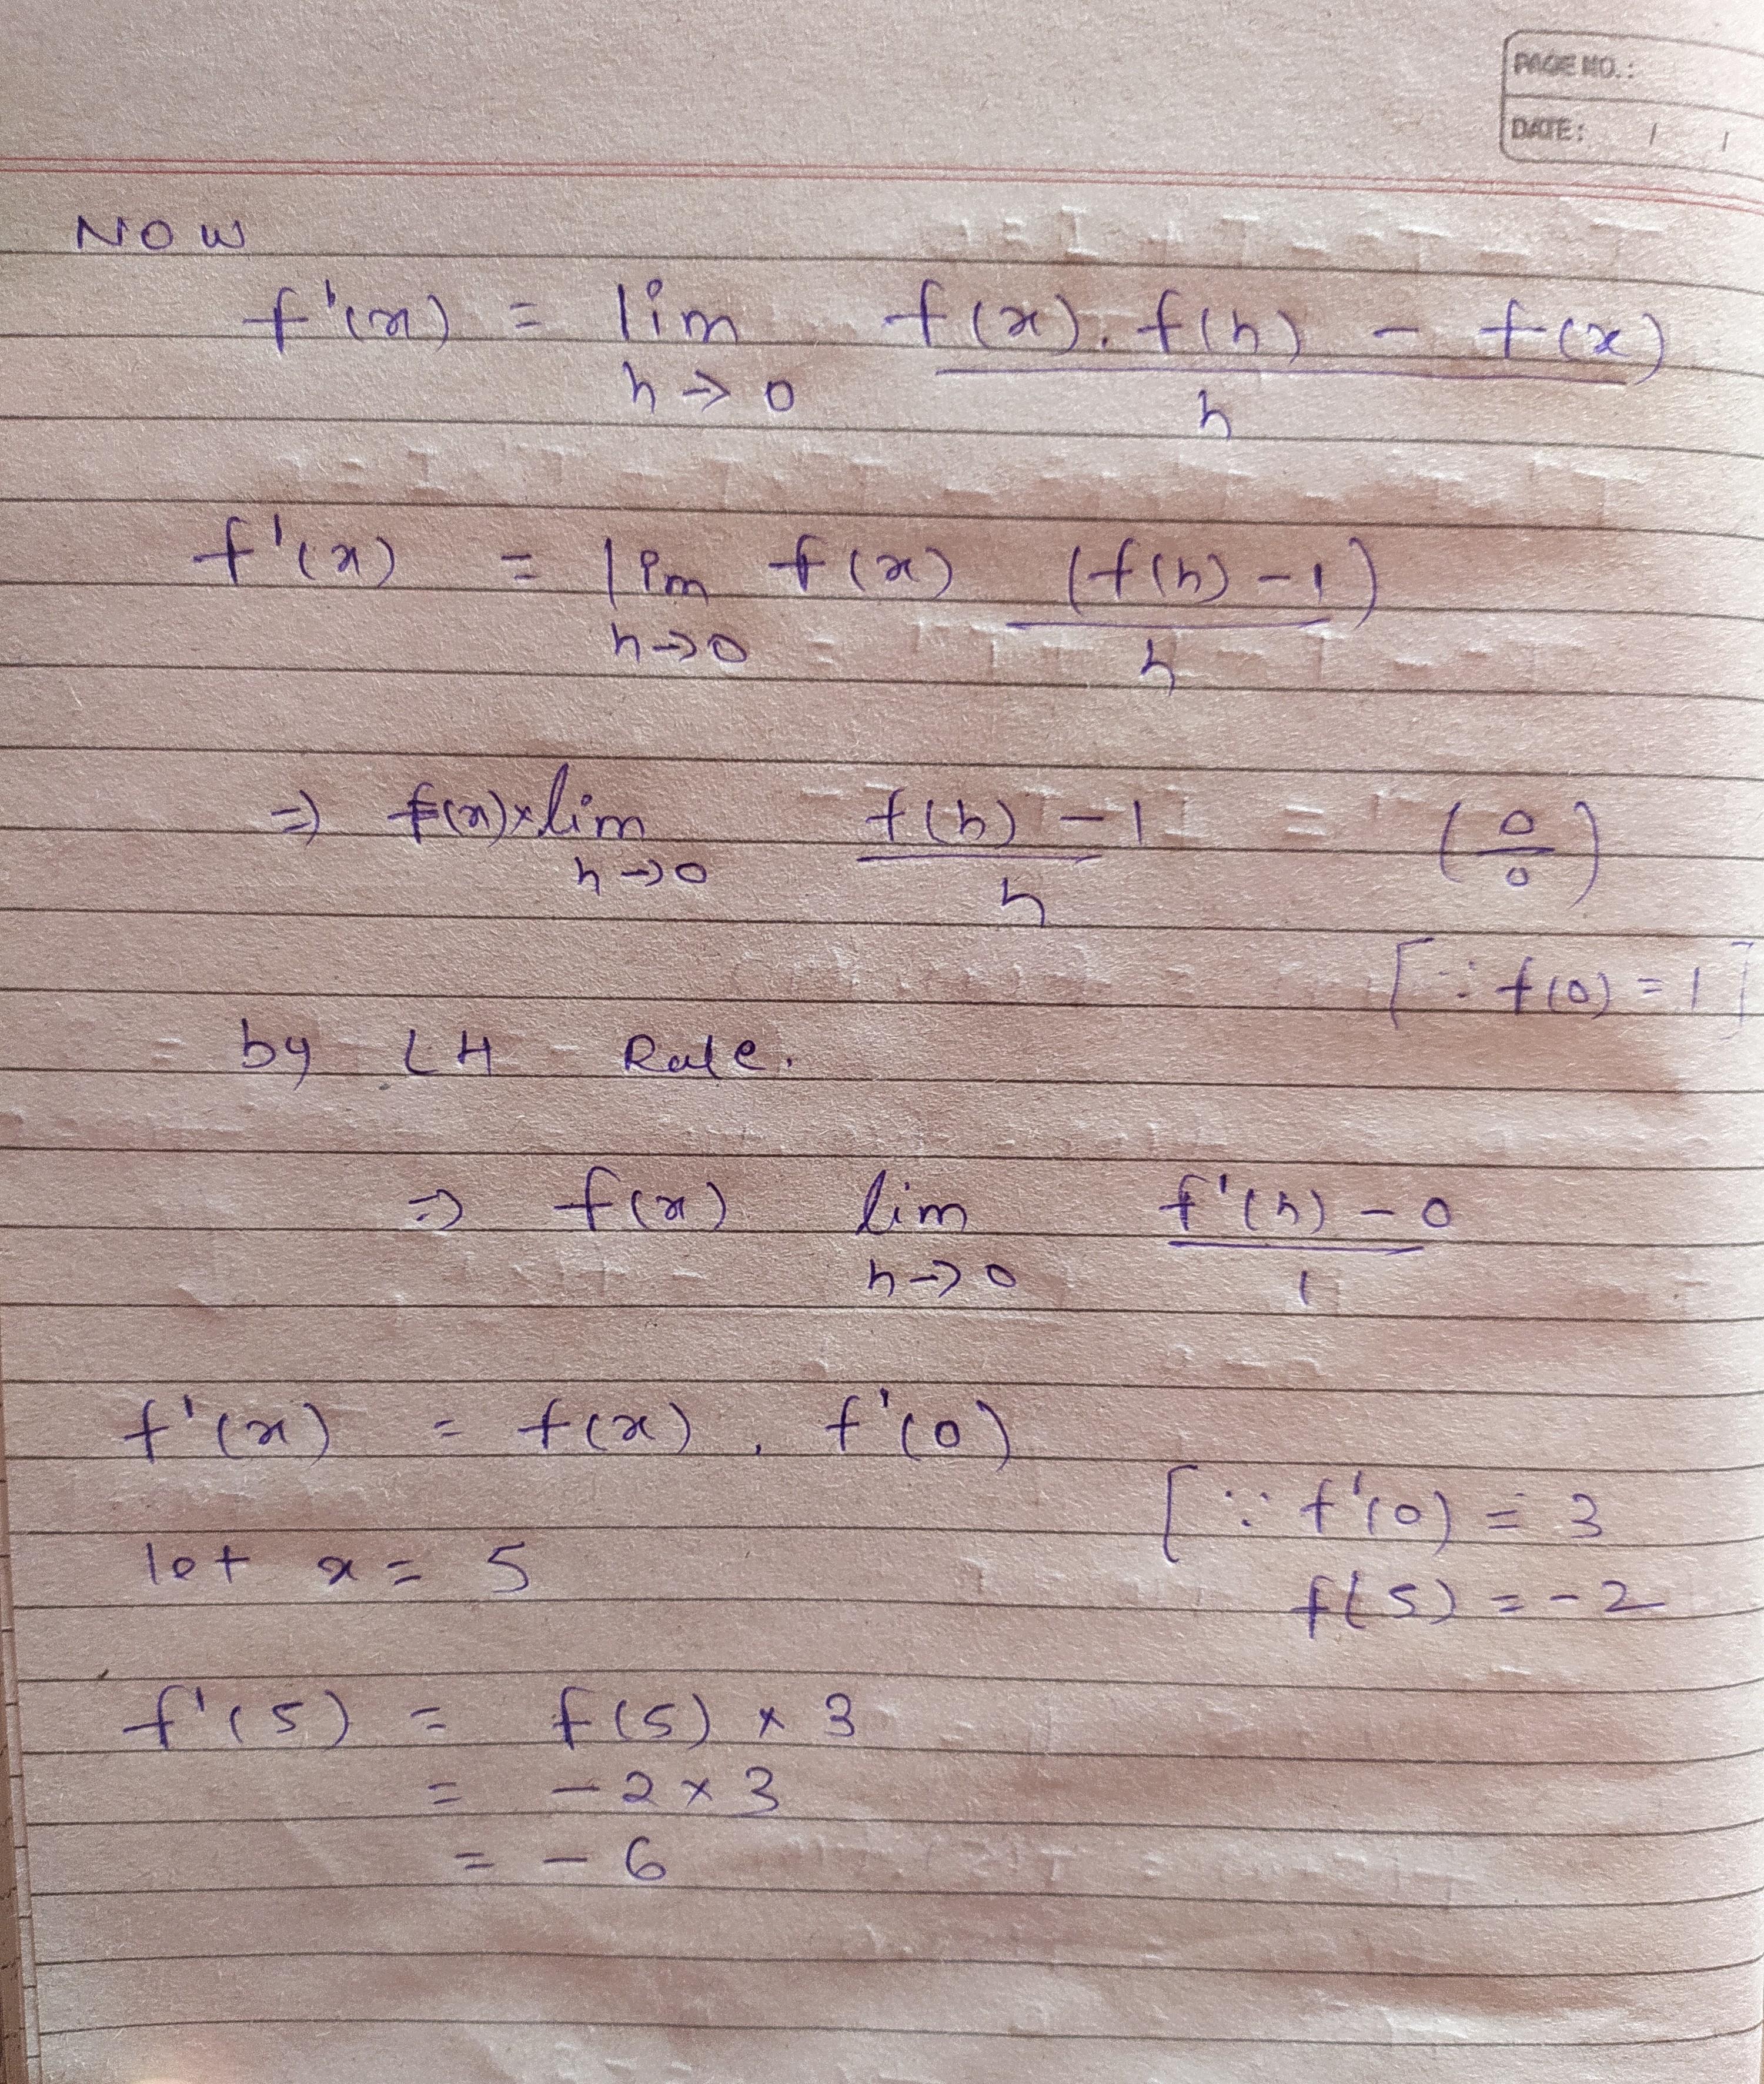 PAGE NO.:
DATE: / /
NOW
f'(x) = lim h→0 f(x).f(h) - f(x) / h
f'(x) = lim h→0 f(x) (f(h)-1) / h
⇒ f(x)× lim h→0 f(h)-1 / h = (0/0)
[∵ f(0) = 1]
by LH Rule.
⇒ f(x) lim h→0 f'(h) - 0 / 1
f'(x) = f(x) . f'(0)
[∵ f'(0) = 3
let x = 5
f(5) = -2
f'(5) = f(5) × 3
= -2 × 3
= -6